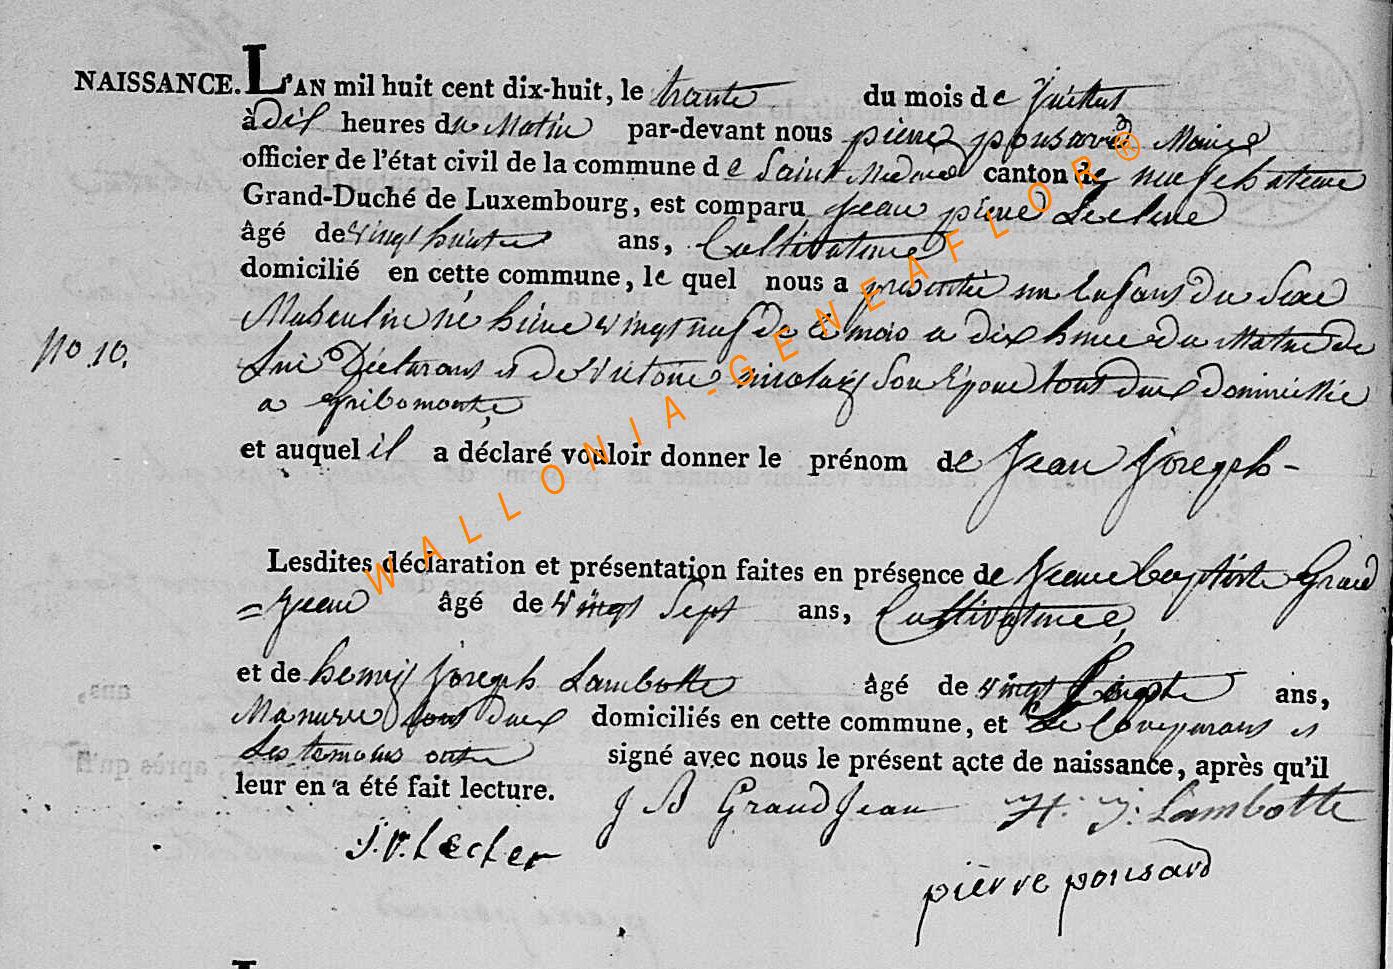 NAISSANCE. L'AN mil huit cent dix-huit, le trante du mois de Juillet
à dix heures du Matin par-devant nous pierre pousard Maire
officier de l'état civil de la commune de Saint Medard canton de neufchateau
Grand-Duché de Luxembourg, est comparu Jean pierre Lecler
âgé de vingt huite ans, Cultivateur
domicilié en cette commune, le quel nous a presentée un Enfant du Sexe
Masculin né hiere vingt neuf de ce mois a dix heure du Matin de
No 10.
Lui Déclarans et de Victoire nicolay Son Epouse tous deux domiciliée
a gribomonte
et auquel il a déclaré vouloir donner le prénom de Jean Joseph -
Lesdites déclaration et présentation faites en présence de Jean baptiste Grand
= Jean âgé de vingt Sept ans, Cultivateur
et de henry Joseph Lambotte âgé de vingt ans,
Manuvre tous deux domiciliés en cette commune, et Le Comparans et
Les temoins onte signé avec nous le présent acte de naissance, après qu'il
leur en a été fait lecture. J B GrandJean H. J. Lambotte
J. P. Lecler
pierre pousard
WALLONIA-GENEAFLOR®